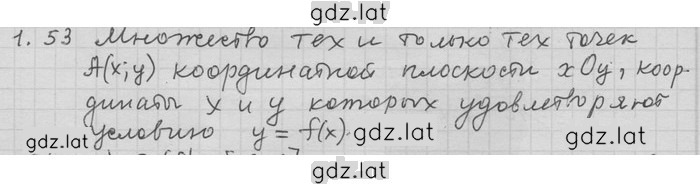 gdz.lat
1.53 Множество тех и только тех точек
A(x; y) координатной плоскости xOy, коор-
динаты x и y которых удовлетворяют
gdz.lat
условию y = f(x). gdz.lat
gdz.lat
gdz.lat